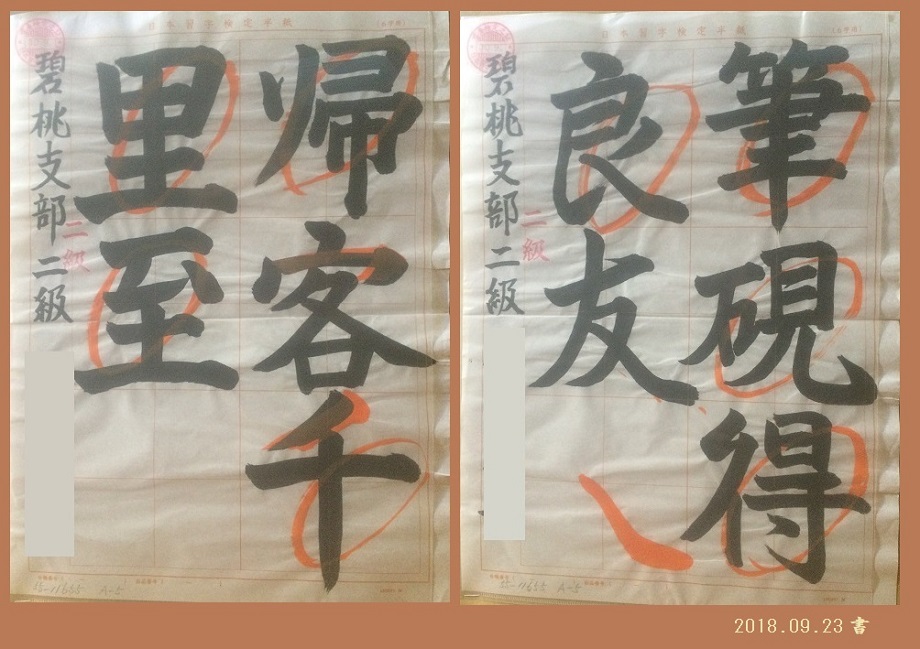 日本習字検定半紙
帰客千
里至
碧桃支部 二級
二級
日本習字検定半紙
筆硯得
良友
碧桃支部 二級
二級
2018.09.23 書